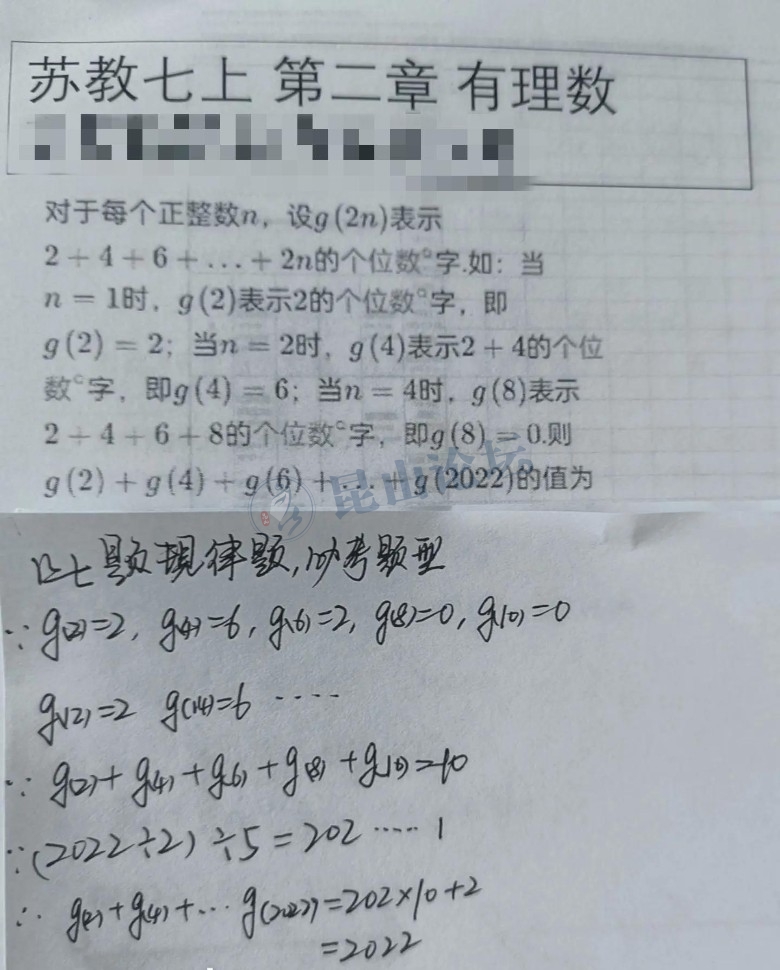 苏教七上 第二章 有理数
对于每个正整数n，设g(2n)表示
2+4+6+...+2n的个位数°字.如：当
n = 1时，g(2)表示2的个位数°字，即
g(2) = 2；当n = 2时，g(4)表示2+4的个位
数°字，即g(4) = 6；当n = 4时，g(8)表示
2+4+6+8的个位数°字，即g(8) = 0.则
g(2)+g(4)+g(6)+...+g(2022)的值为
昆山论坛
题规律题,必考题型
∵ g(2)=2, g(4)=6, g(6)=2, g(8)=0, g(10)=0
g(12)=2 g(14)=6 ····
∵ g(2)+g(4)+g(6)+g(8)+g(10)=10
∵(2022÷2)÷5=202 ····· 1
∴ g(2)+g(4)+··· g(2022)=202×10+2
=2022